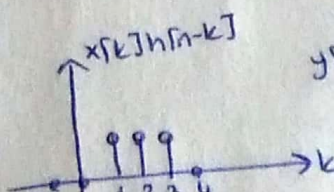 x[k]h[n-k]
y
k
1 2 3 4